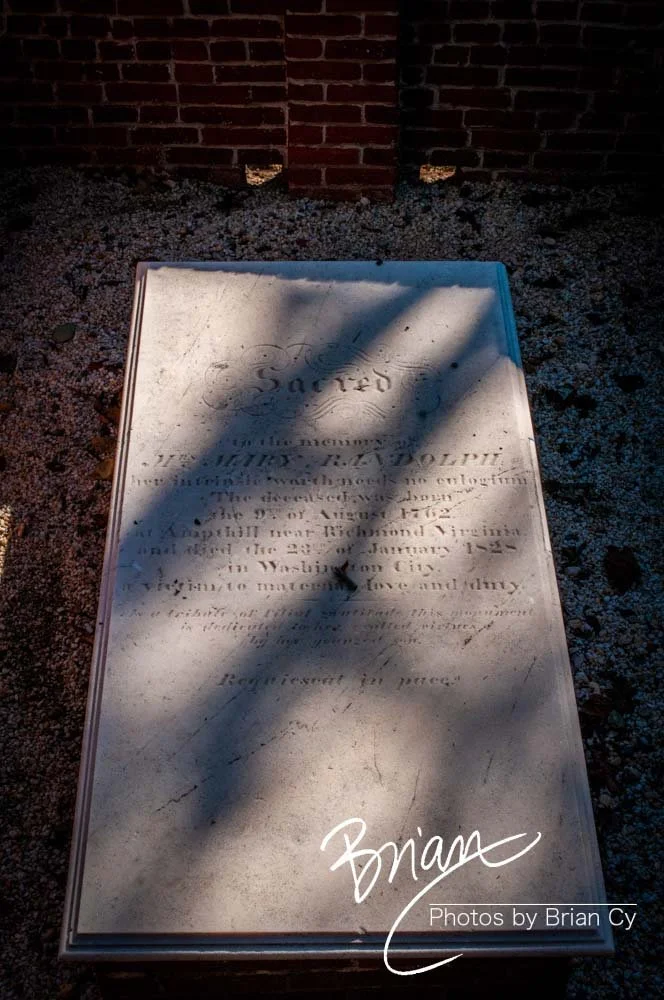 Sacred
to the memory of
Mrs. MARY RANDOLPH,
her intrinsic worth needs no eulogium.
The deceased was born
the 9th. of August 1762
at Ampthill near Richmond Virginia
and died the 23rd. of January 1828
in Washington City,
a victim to maternal love and duty.
As a tribute of filial gratitude this monument
is dedicated to her exalted virtues
by her youngest son.
Requiescat in pace.
Brian
Photos by Brian Cy